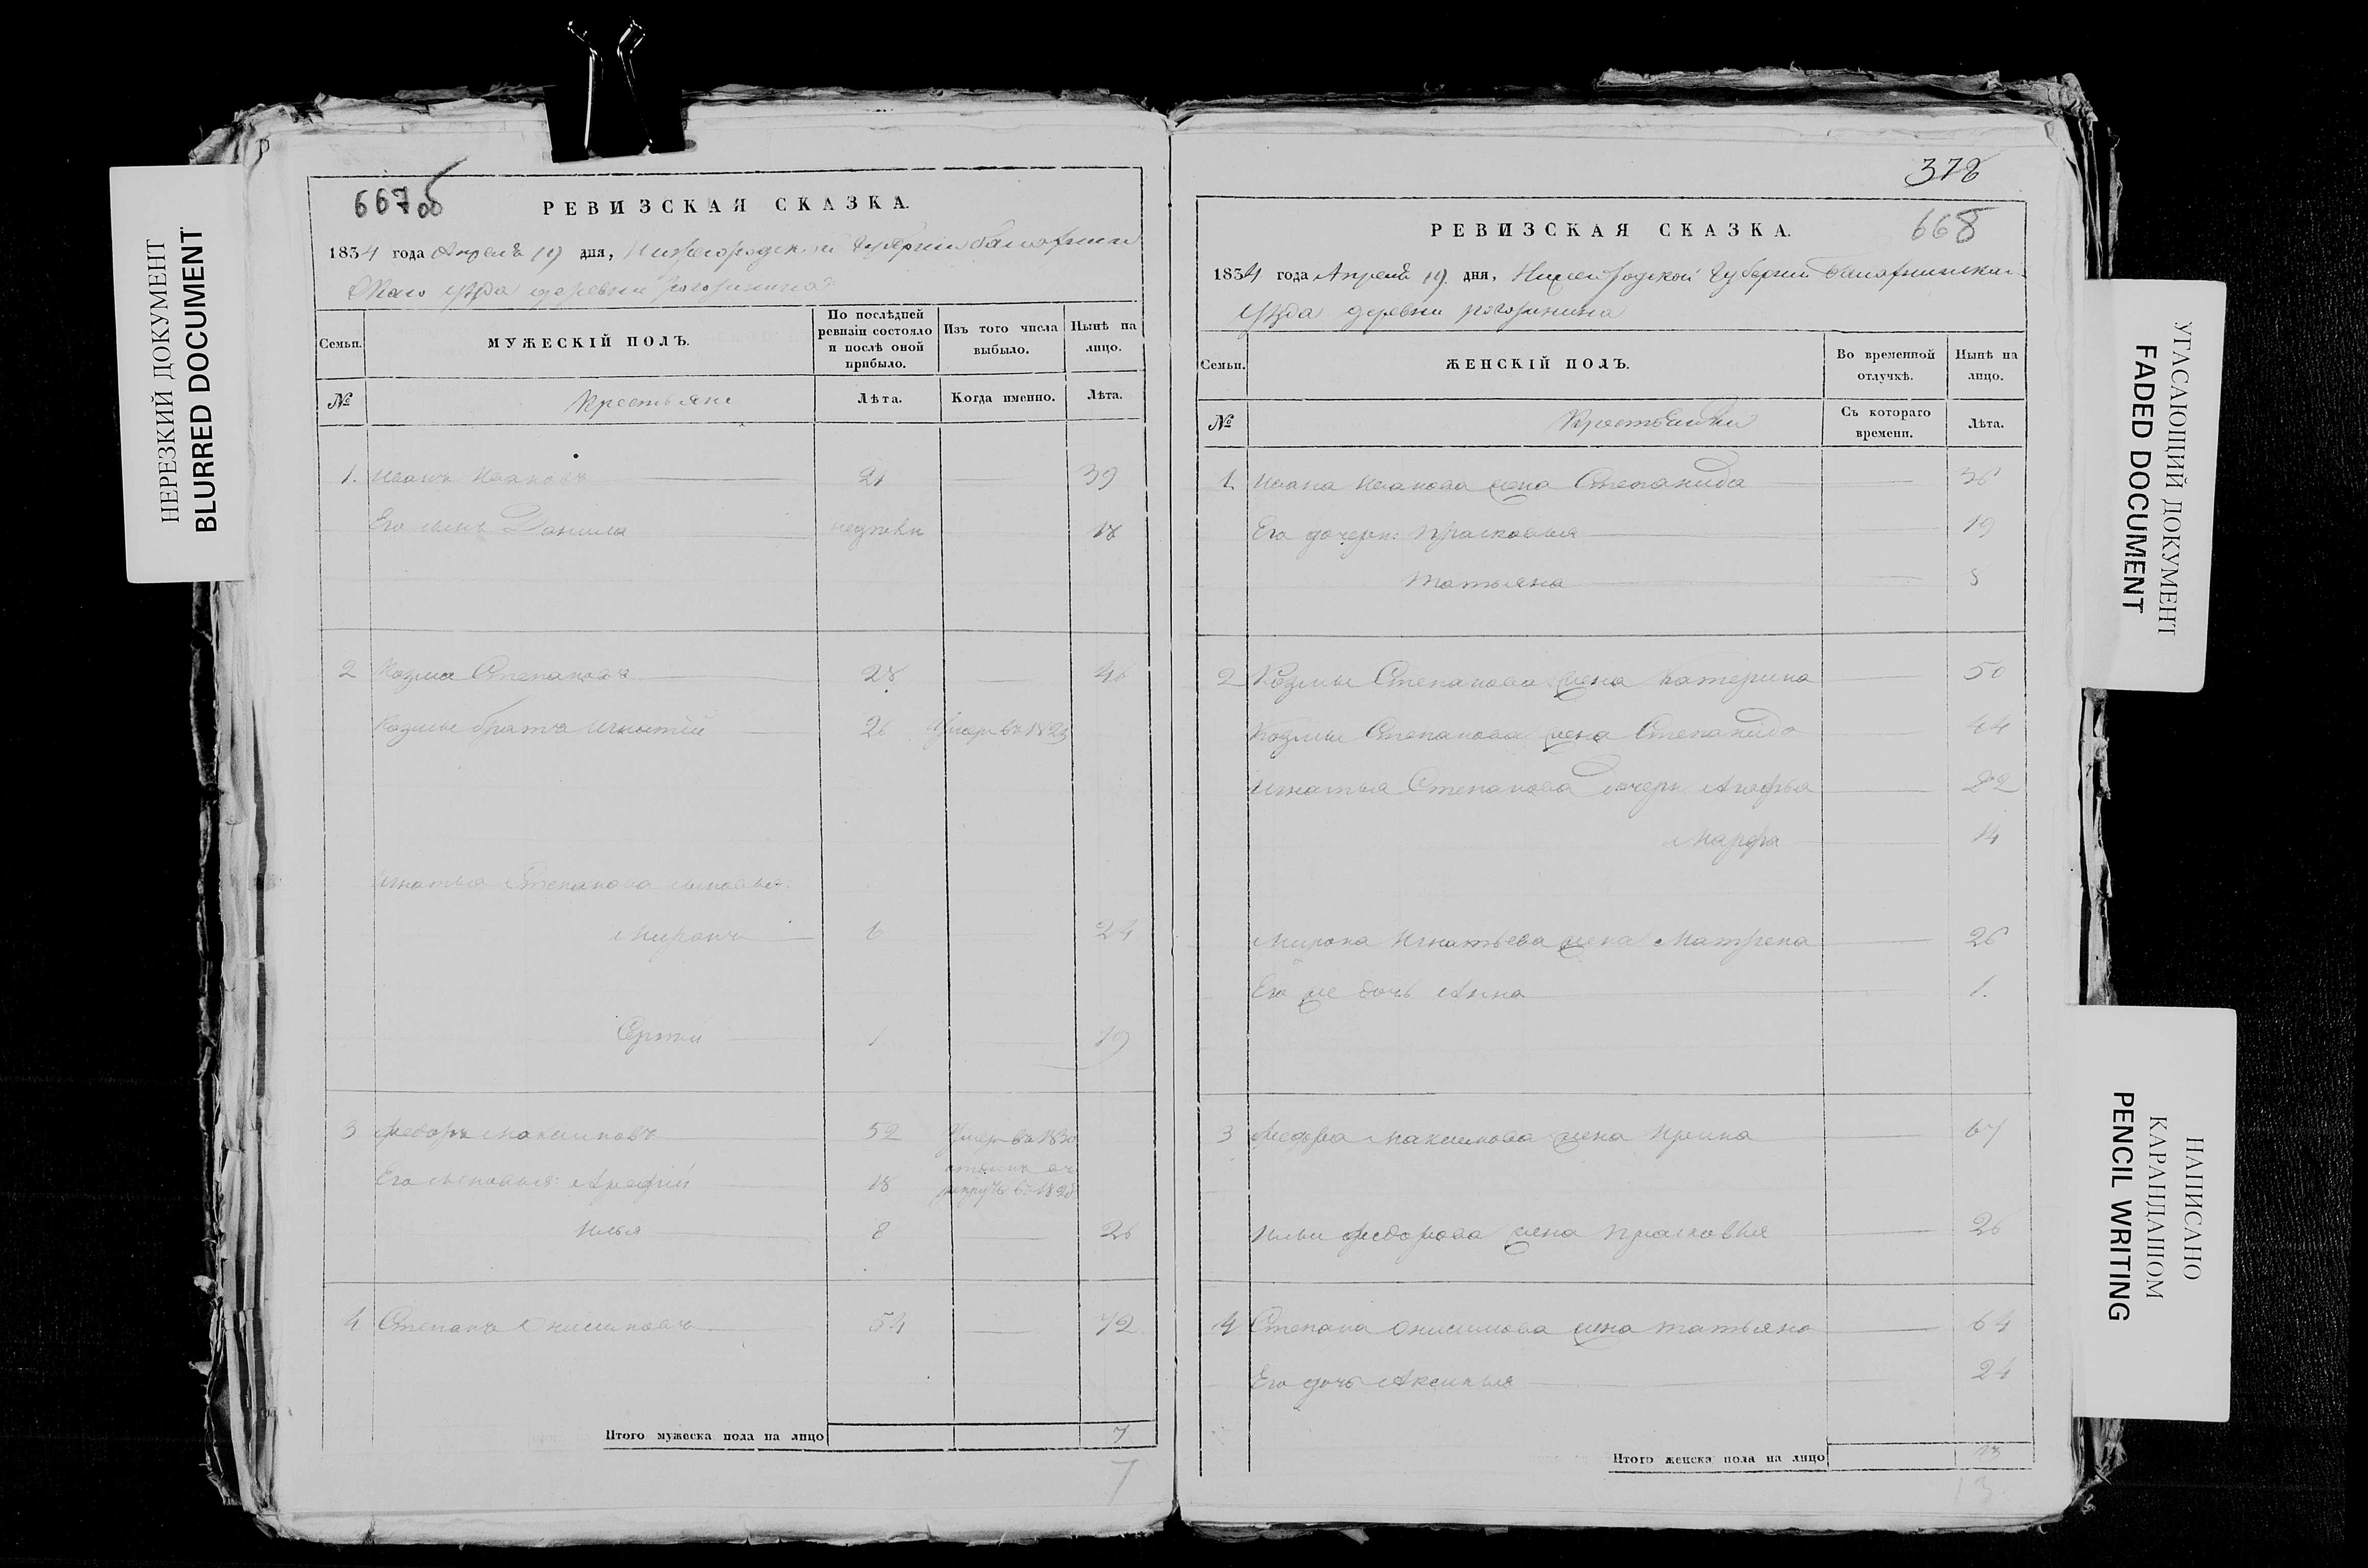 НЕРЕЗКИЙ ДОКУМЕНТ
BLURRED DOCUMENT
667 об
РЕВИЗСКАЯ СКАЗКА.
1834 года Апреля 19 дня, Нижегородской Губернии Балахнин
скаго уезда деревни
Семьи.
МУЖЕСКІЙ ПОЛЪ.
По послѣдней ревизіи состояло и послѣ оной прибыло.
Изъ того числа выбыло.
Нынѣ на лицо.
№
Крестьяне
Лѣта.
Когда именно.
Лѣта.
1. Иванъ Ивановъ 21 39
Его сынъ Данила 18
2 Козма Степановъ 28 46
Козмы братъ Игнатий 26 Умеръ въ 1823
Игнатья Степанова сыновья:
Миронъ 6 24
Сергей 1 19
3 Федоръ Максимовъ 52 Умеръ въ 1830
Его сыновья: Арефий 18
Илья 8 26
4 Степанъ Онисимовъ 54 72
Итого мужеска пола на лицо 7
7
378
668
РЕВИЗСКАЯ СКАЗКА.
1834 года Апреля 19 дня, Нижегородской Губернии Балахнинскаго
уезда деревни
Семьи.
ЖЕНСКІЙ ПОЛЪ.
Во временной отлучкѣ.
Нынѣ на лицо.
№
Крестьянки
Съ котораго времени.
Лѣта.
1 Ивана Иванова жена Степанида 36
Его дочери: Прасковья 19
Татьяна 8
2 Козмы Степанова жена Катерина 50
Козмы Степанова жена Степанида 44
Игнатья Степанова дочери Агафья 22
Марфа 14
Мирона Игнатьева жена Матрена 26
Его же дочь Анна 1.
3 Федора Максимова жена Ирина 67
Ильи Федорова жена Прасковья 26
4 Степана Онисимова жена Татьяна 64
Его дочь Аксинья 24
Итого женска пола на лицо 13
13
УГАСАЮЩИЙ ДОКУМЕНТ
FADED DOCUMENT
НАПИСАНО
КАРАНДАШОМ
PENCIL WRITING